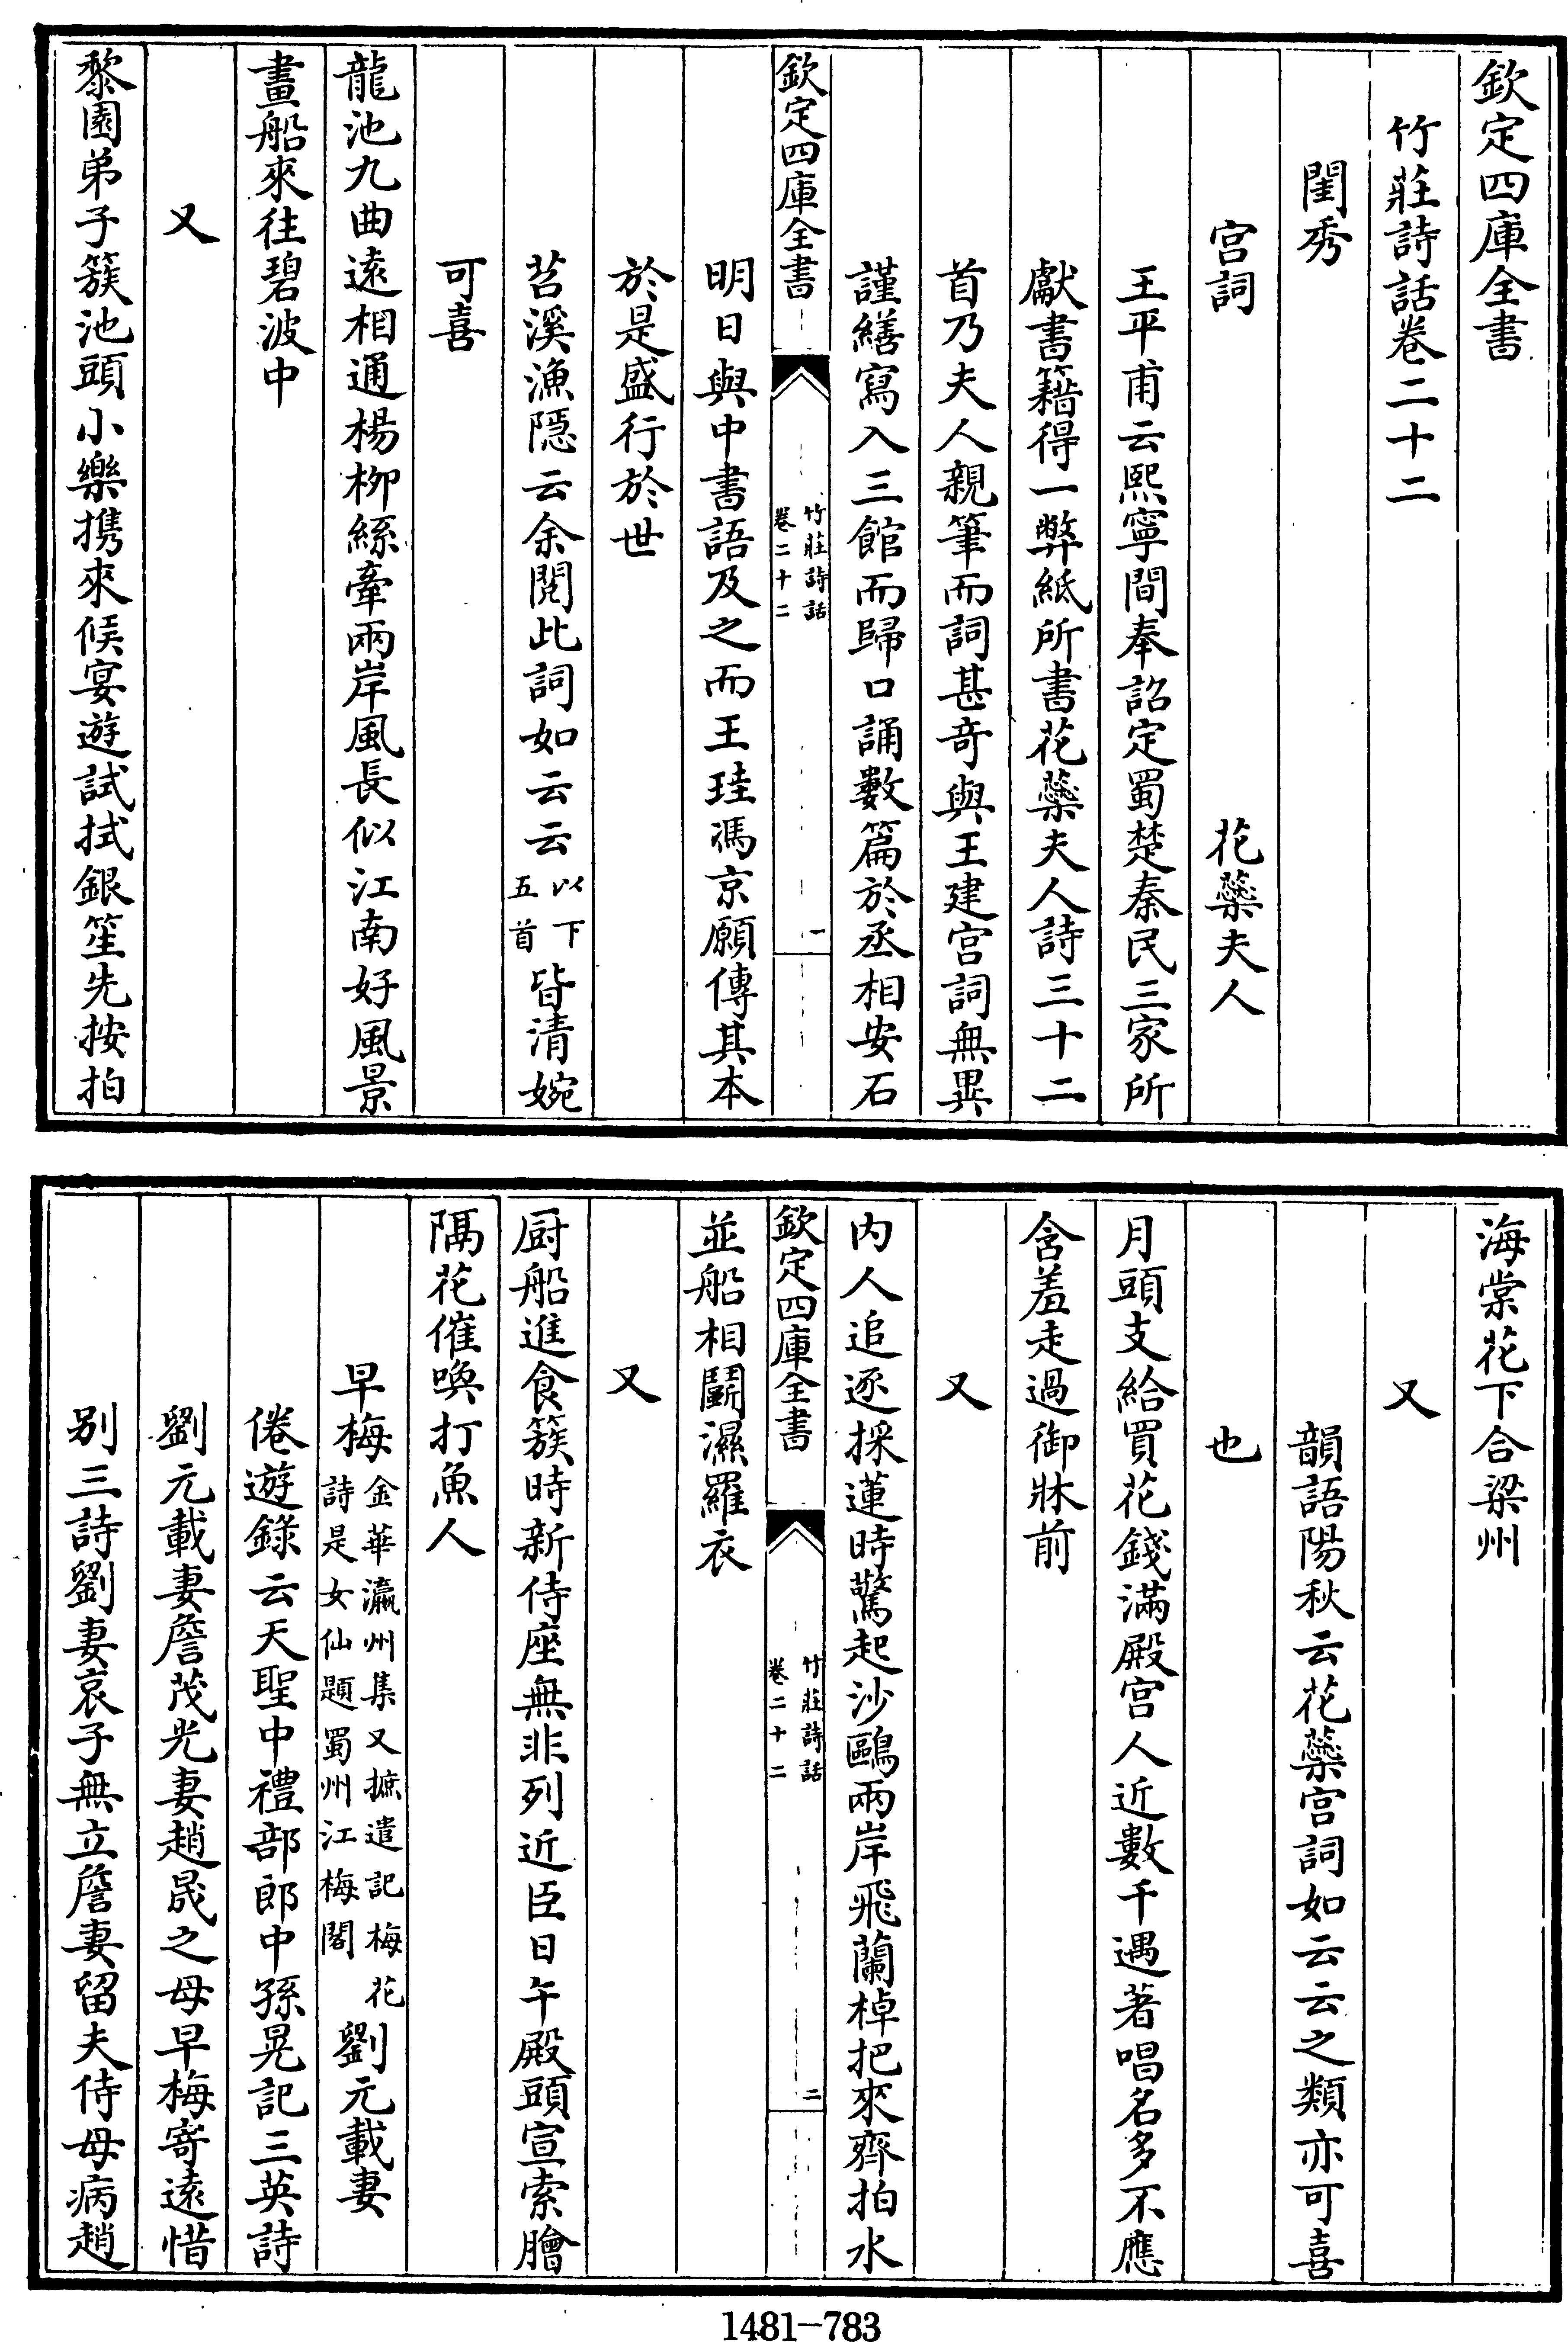 欽定四庫全書
竹莊詩話卷二十二
閨秀
宫詞 花蘂夫人
王平甫云熙寧間奉詔定蜀楚秦民三家所
獻書籍得一弊紙所書花蘂夫人詩三十二
首乃夫人親筆而詞甚奇與王建宫詞無異
謹繕寫入三館而歸口誦數篇於丞相安石
欽定四庫全書
竹莊詩話
卷二十二
一
明日與中書語及之而王珪馮京願傳其本
於是盛行於世
苕溪漁隱云余閱此詞如云云以下五首皆清婉
可喜
龍池九曲遠相通楊柳絲牽兩岸風長似江南好風景
畫船來往碧波中
又
黎園弟子簇池頭小樂擕來候宴遊試拭銀笙先按拍
海棠花下合梁州
又
韻語陽秋云花蘂宫詞如云云之類亦可喜
也
月頭支給買花錢滿殿宫人近數千遇著唱名多不應
含羞走過御牀前
又
内人追逐採蓮時驚起沙鷗兩岸飛蘭棹把來齊拍水
欽定四庫全書
竹莊詩話
卷二十二
二
並船相鬭濕羅衣
又
厨船進食簇時新侍座無非列近臣日午殿頭宣索膾
隔花催喚打魚人
早梅金華瀛州集又摭遺記梅花詩是女仙題蜀州江梅閣劉元載妻
倦遊錄云天聖中禮部郎中孫晃記三英詩
劉元載妻詹茂光妻趙晟之母早梅寄遠惜
别三詩劉妻哀子無立詹妻留夫侍母病趙
1481—783